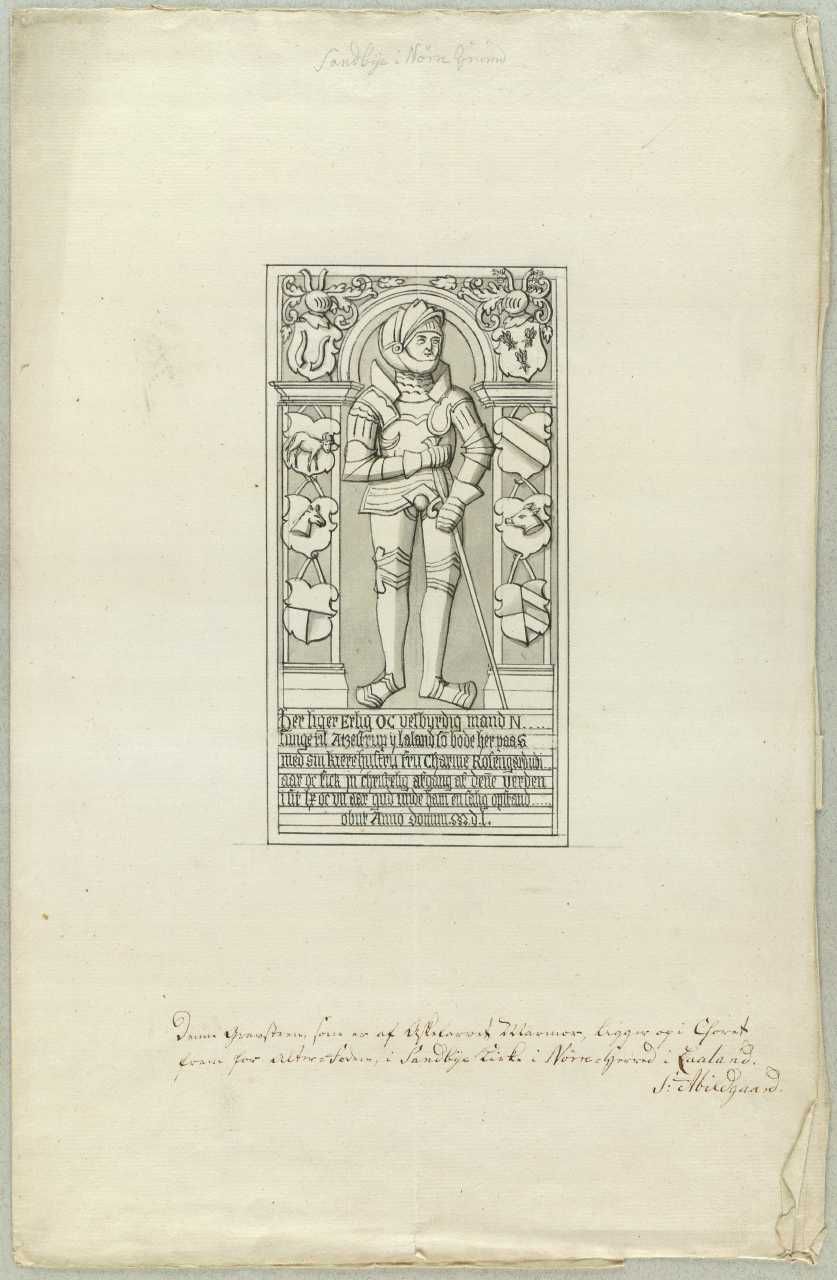 Sandbye i Nørre
Her liger Erlig OC velbyrdig mand N.....
lunge til Atzestrup y laland so bode her paa
med sin kiere hustru fru Charine Rosengard
aar oc fick in christelig afgang af dene verden
i sit lx oc vii aar gud unde ham en salig opstand.....
obiit Anno domini d.l.
Denne Gravsteen, som er af Marmor, ligger op i Choret
frem for Alter-Foden, i Sandbye Kirke i Nørre-Herred i Laaland.
S: Abildgaard.